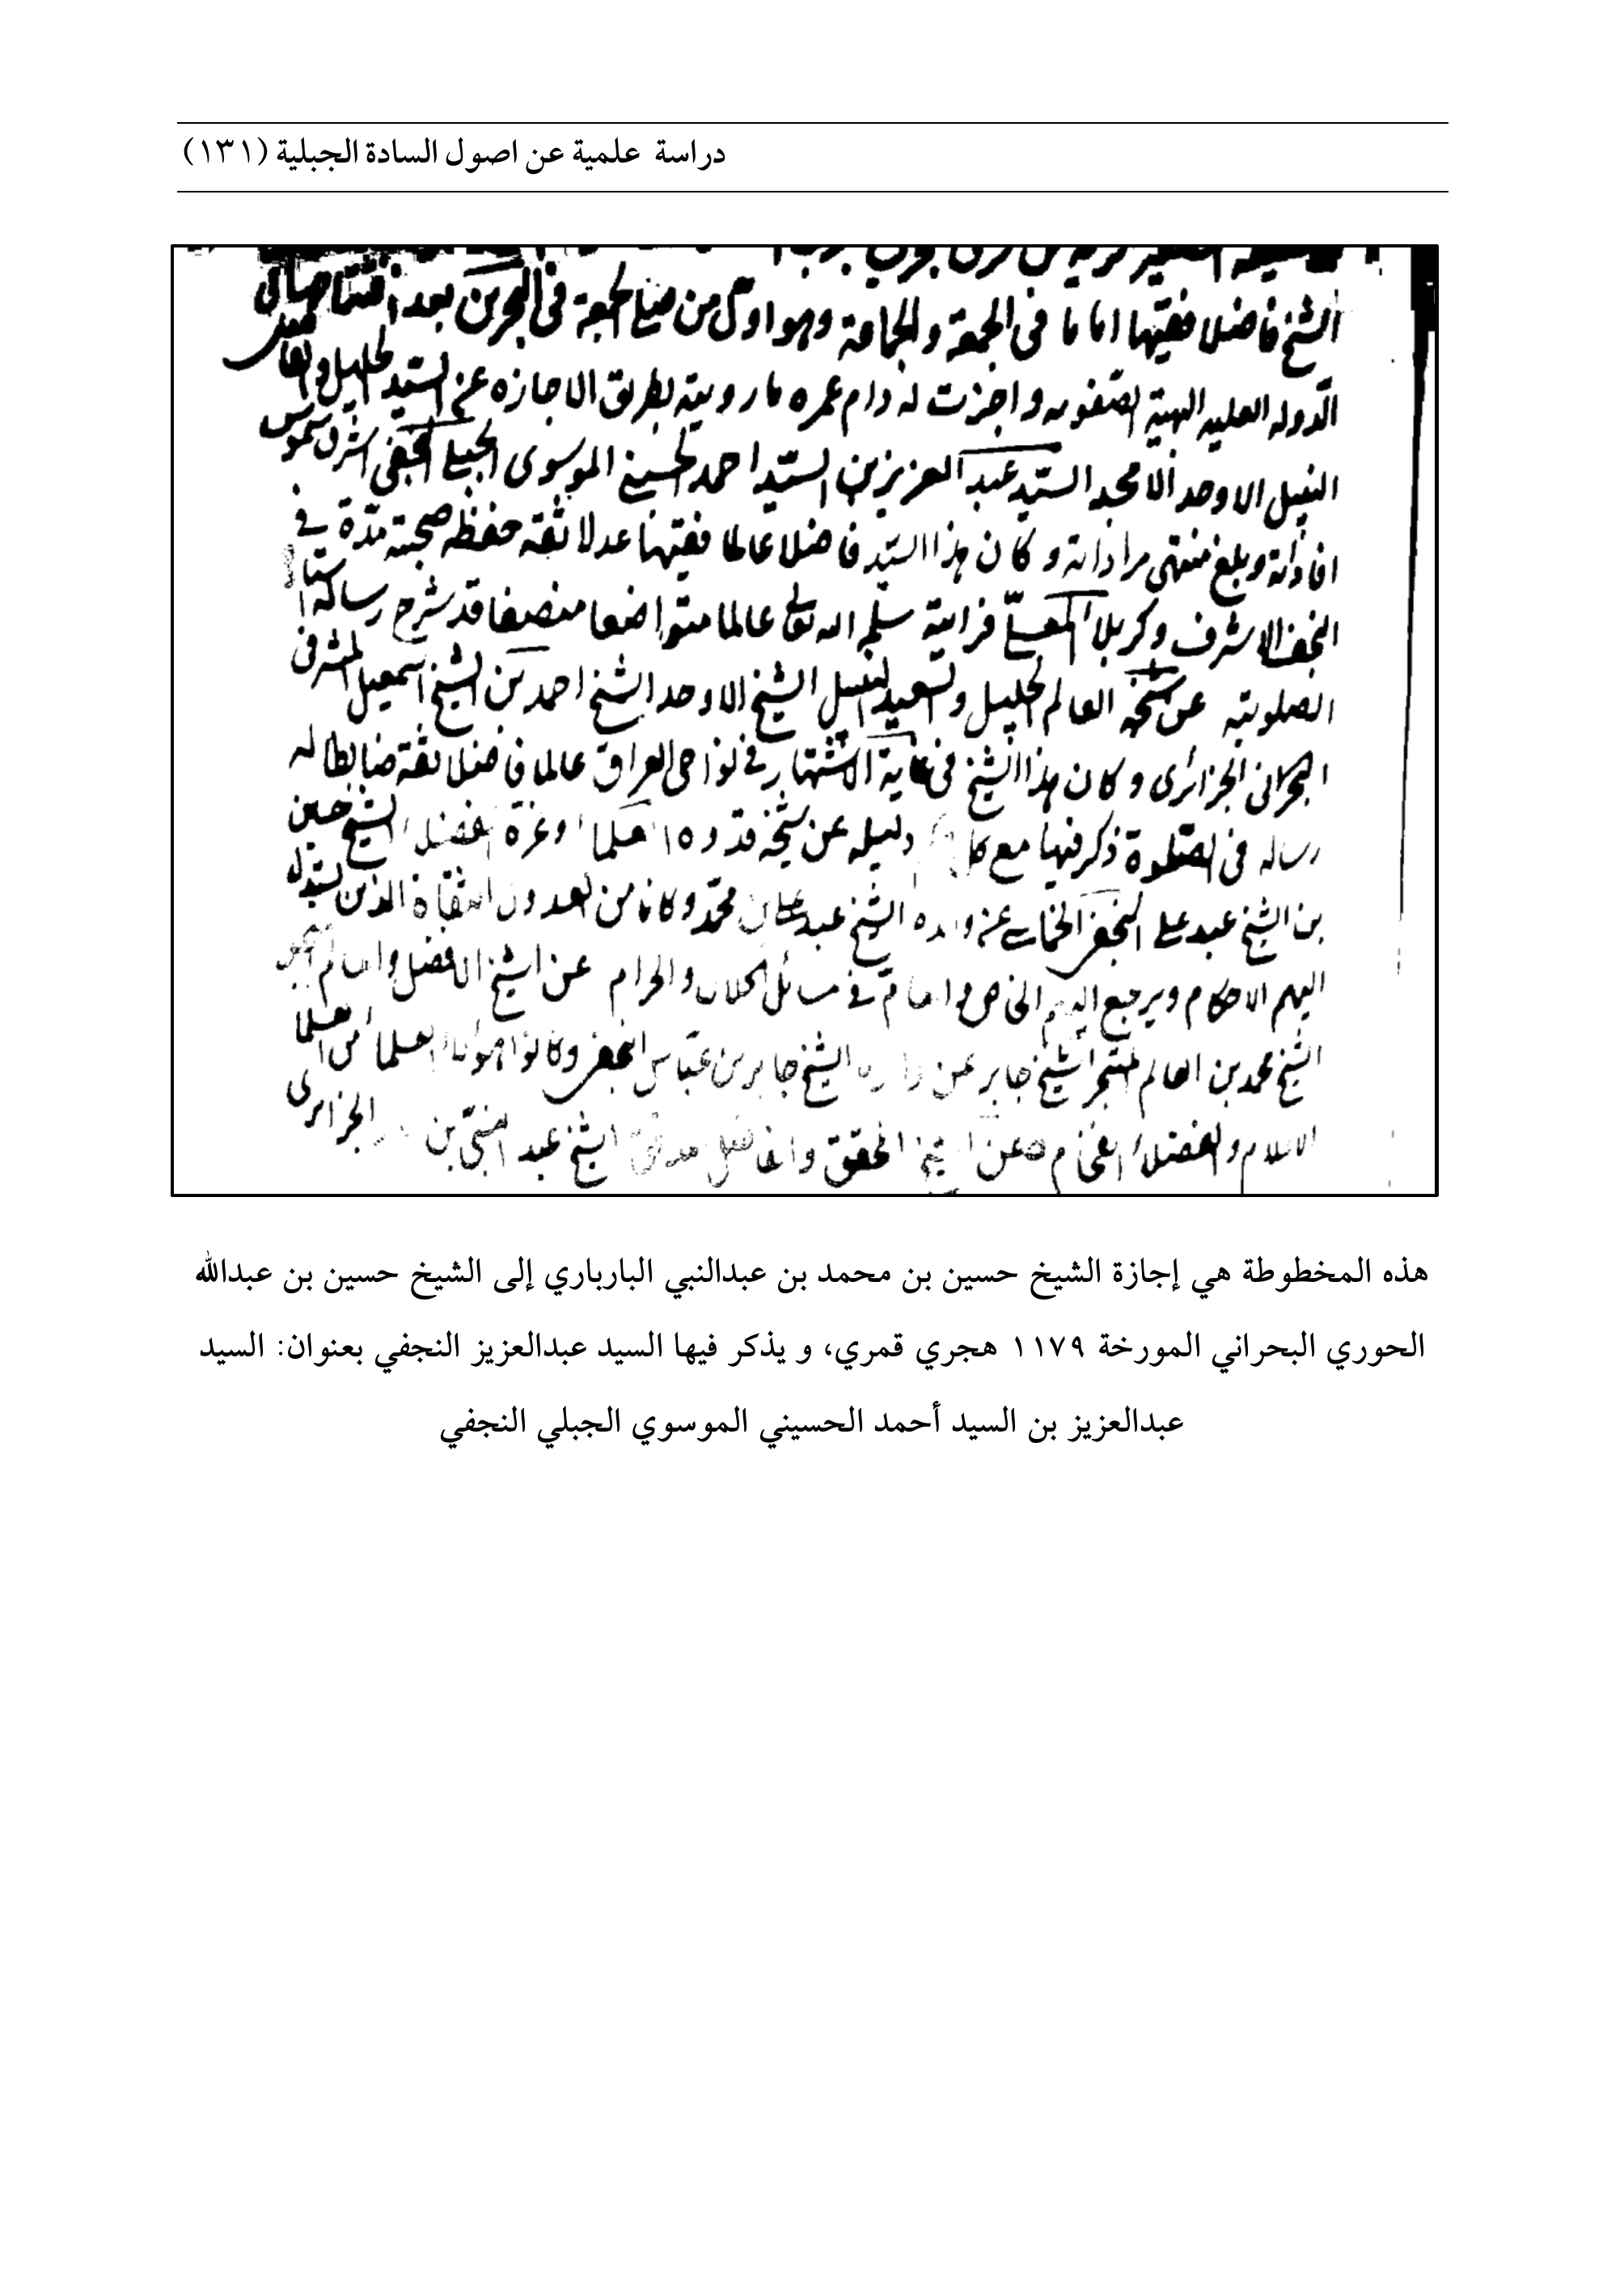 دراسة علمية عن اصول السادة الجبلية (١٣١)
الشيخ فاضلا فقيها اماما فى الجمعة والجماعة وهو اول من صلى الجمعة فى البحرين بعد افتتاحها الى
الدوله العليه البهية الصفويه واجزت له دام عمره ما رويته بطريق الاجازه عن السيد الجليل والعالم
النبيل الاوحد الامجد السيد عبد العزيز بن السيد احمد الحسينى الموسوى الجبلى النجفى اشرق شموس
افاداته وبلغ منتهى مراداته وكان هذا السيد فاضلا عالما فقيها عدلا ثقة حفظه صحبته مدة فى
النجف الاشرف وكربلا المعلى فرايته سلمه الله تعالى عالما متواضعا منصفا قد شرح رسالة
الصلوتيه عن شيخه العالم الجليل والسعيد النبيل الشيخ الاوحد الشيخ احمد بن الشيخ اسمعيل
البحرانى الجزائرى وكان هذا الشيخ فى غاية الاشتهار فى نواحى العراق عالما فاضلا ثقة ضابطا له
رساله فى الصلوة ذكر فيها مع كل دليله عن شيخه قدوه العلماء وغرة الفضلاء الشيخ حسين
بن الشيخ عبد على النجفى عن والده الشيخ عبد على بن محمد وكانا من العدول الثقاة الذين
اليهم الاحكام ويرجع اليهم الخاص والعام فى مسائل الحلال والحرام عن الشيخ الافضل والعالم
الشيخ محمد بن العالم المتبحر الشيخ جابر عن والده الشيخ جابر بن عباس النجفى وكانوا هولاء العلماء من
الاعلام والفضلاء الفخام عن الشيخ المحقق والفاضل المدقق الشيخ عبد النبى بن الجزائرى
هذه المخطوطة هي إجازة الشيخ حسين بن محمد بن عبدالنبي البارباري إلى الشيخ حسين بن عبدالله
الحوري البحراني المورخة ١١٧٩ هجري قمري، و يذكر فيها السيد عبدالعزيز النجفي بعنوان: السيد
عبدالعزيز بن السيد أحمد الحسيني الموسوي الجبلي النجفي